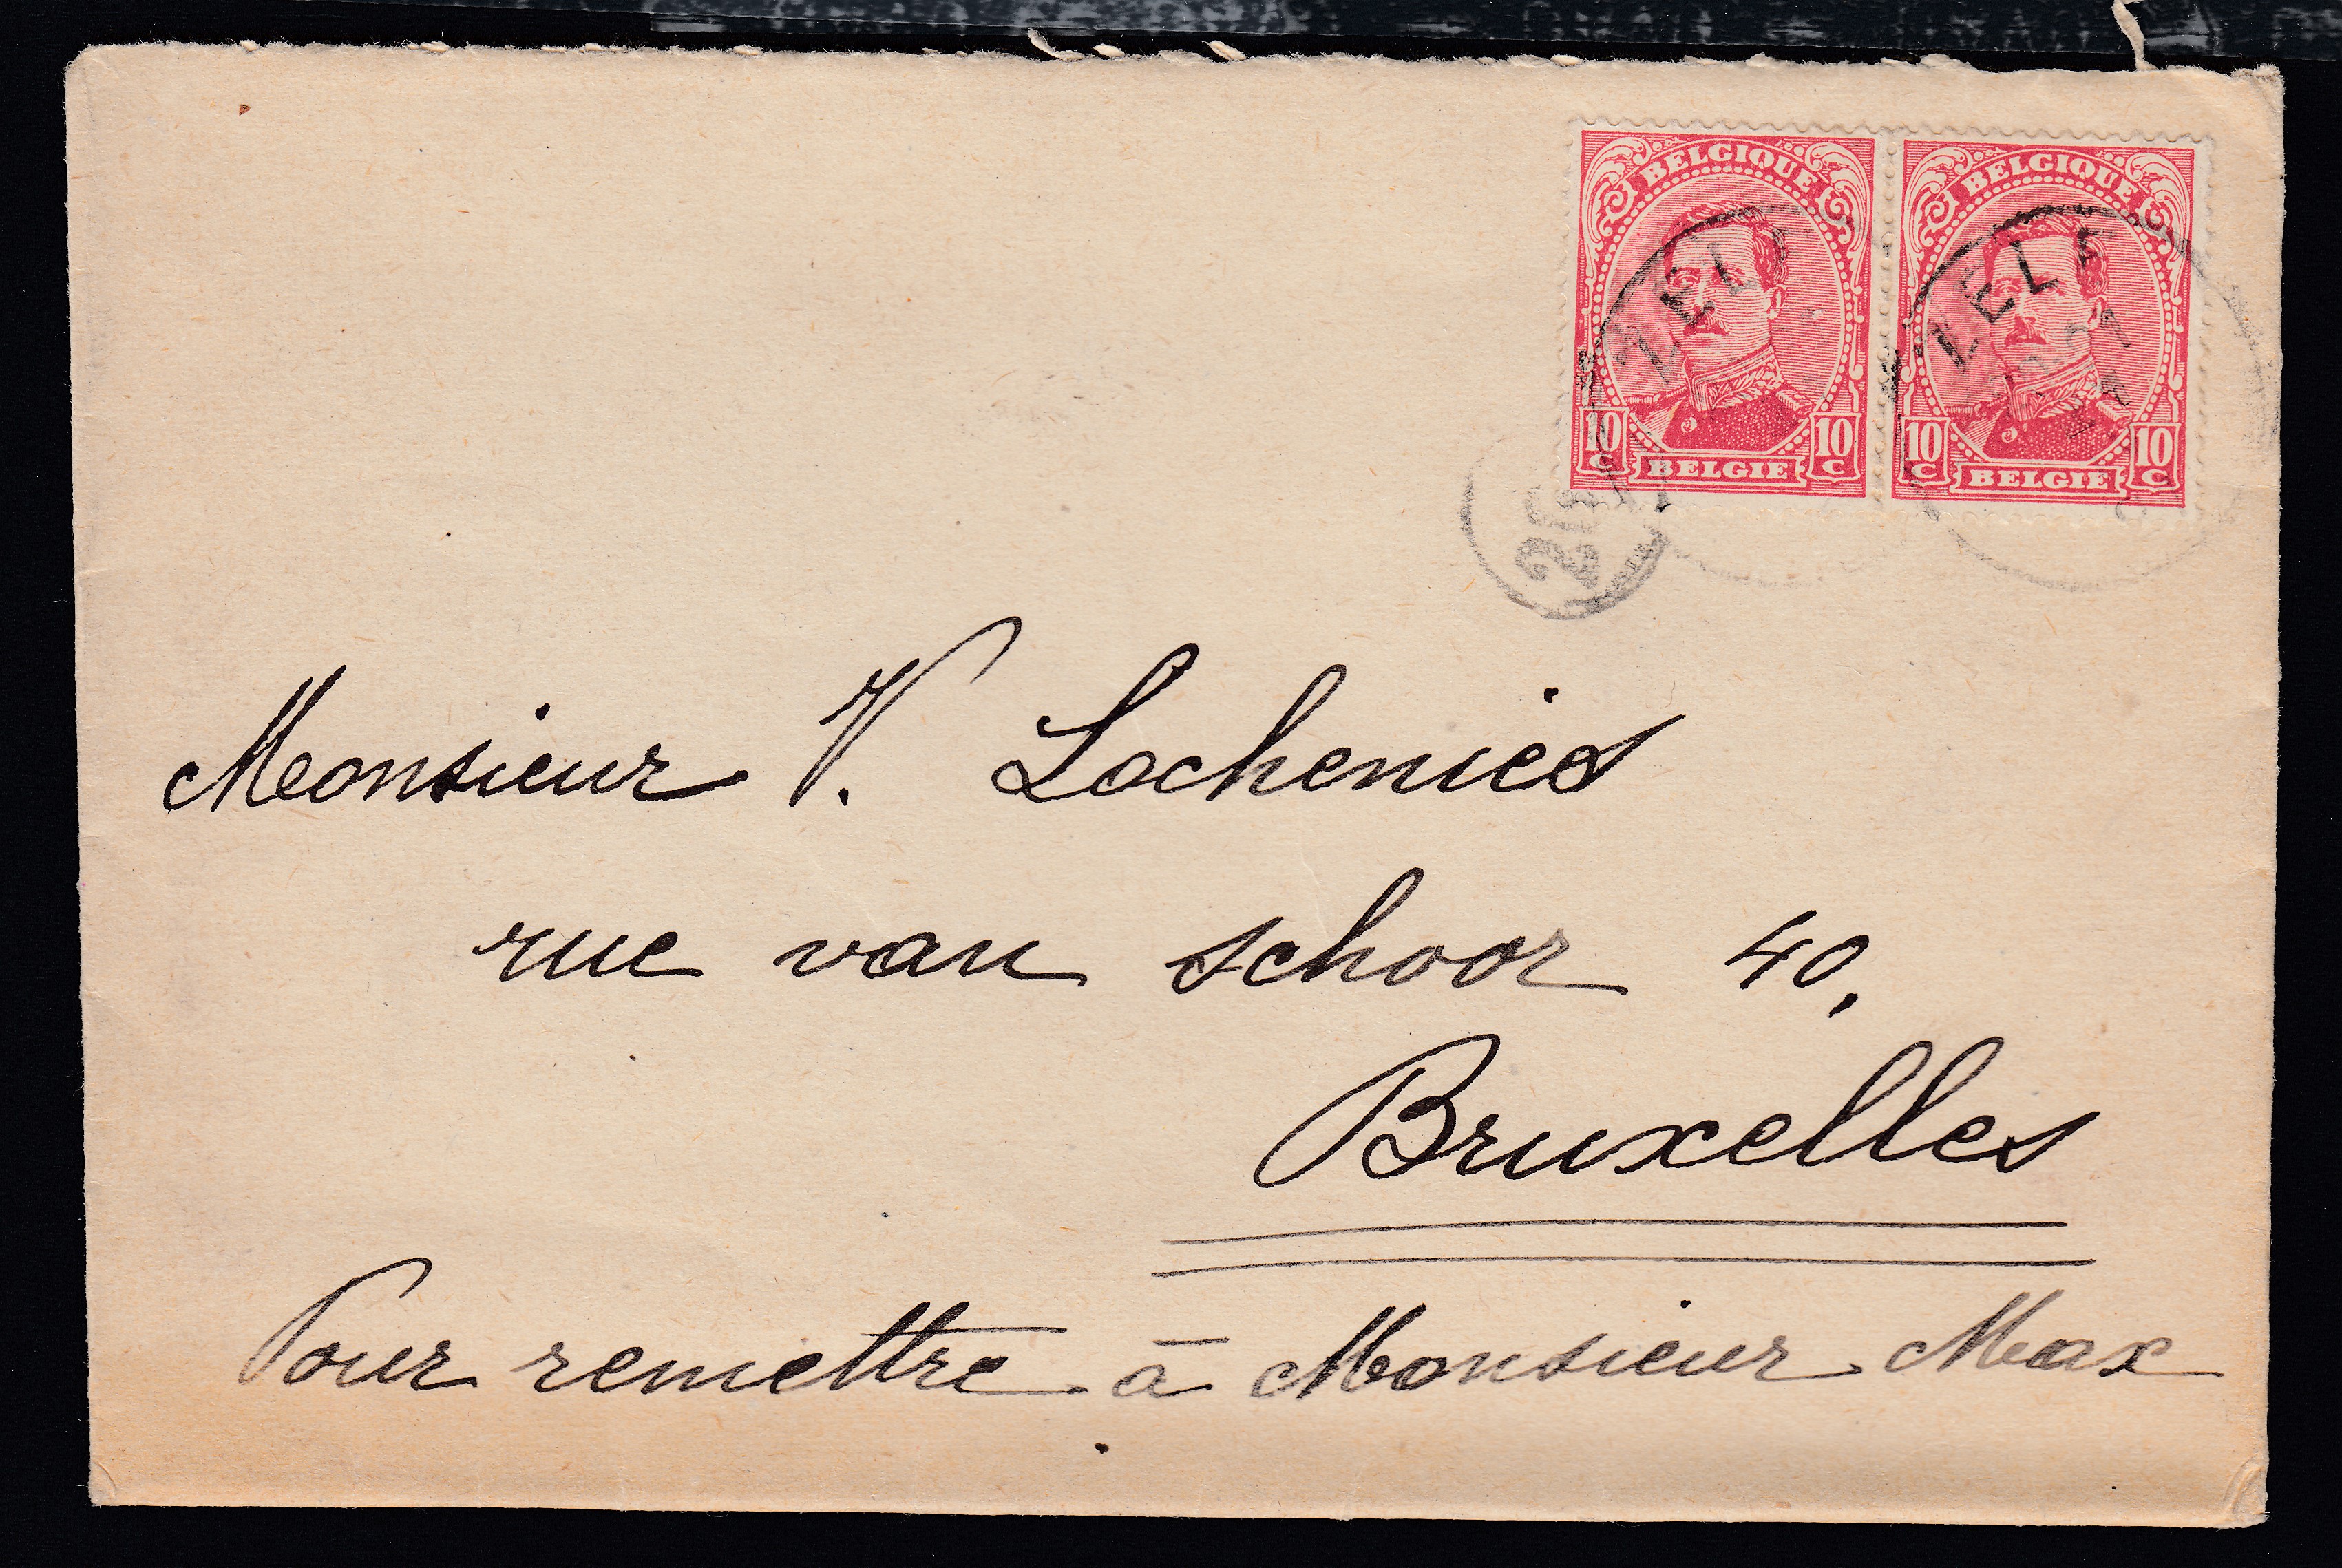 BELGIQUE BELGIQUE
ZEL ZELE
10 C BELGIË 10 C 10 C BELGIË 10 C
Monsieur V. Lochenies
rue van schoor 40,
Bruxelles
Pour remettre à Monsieur Max